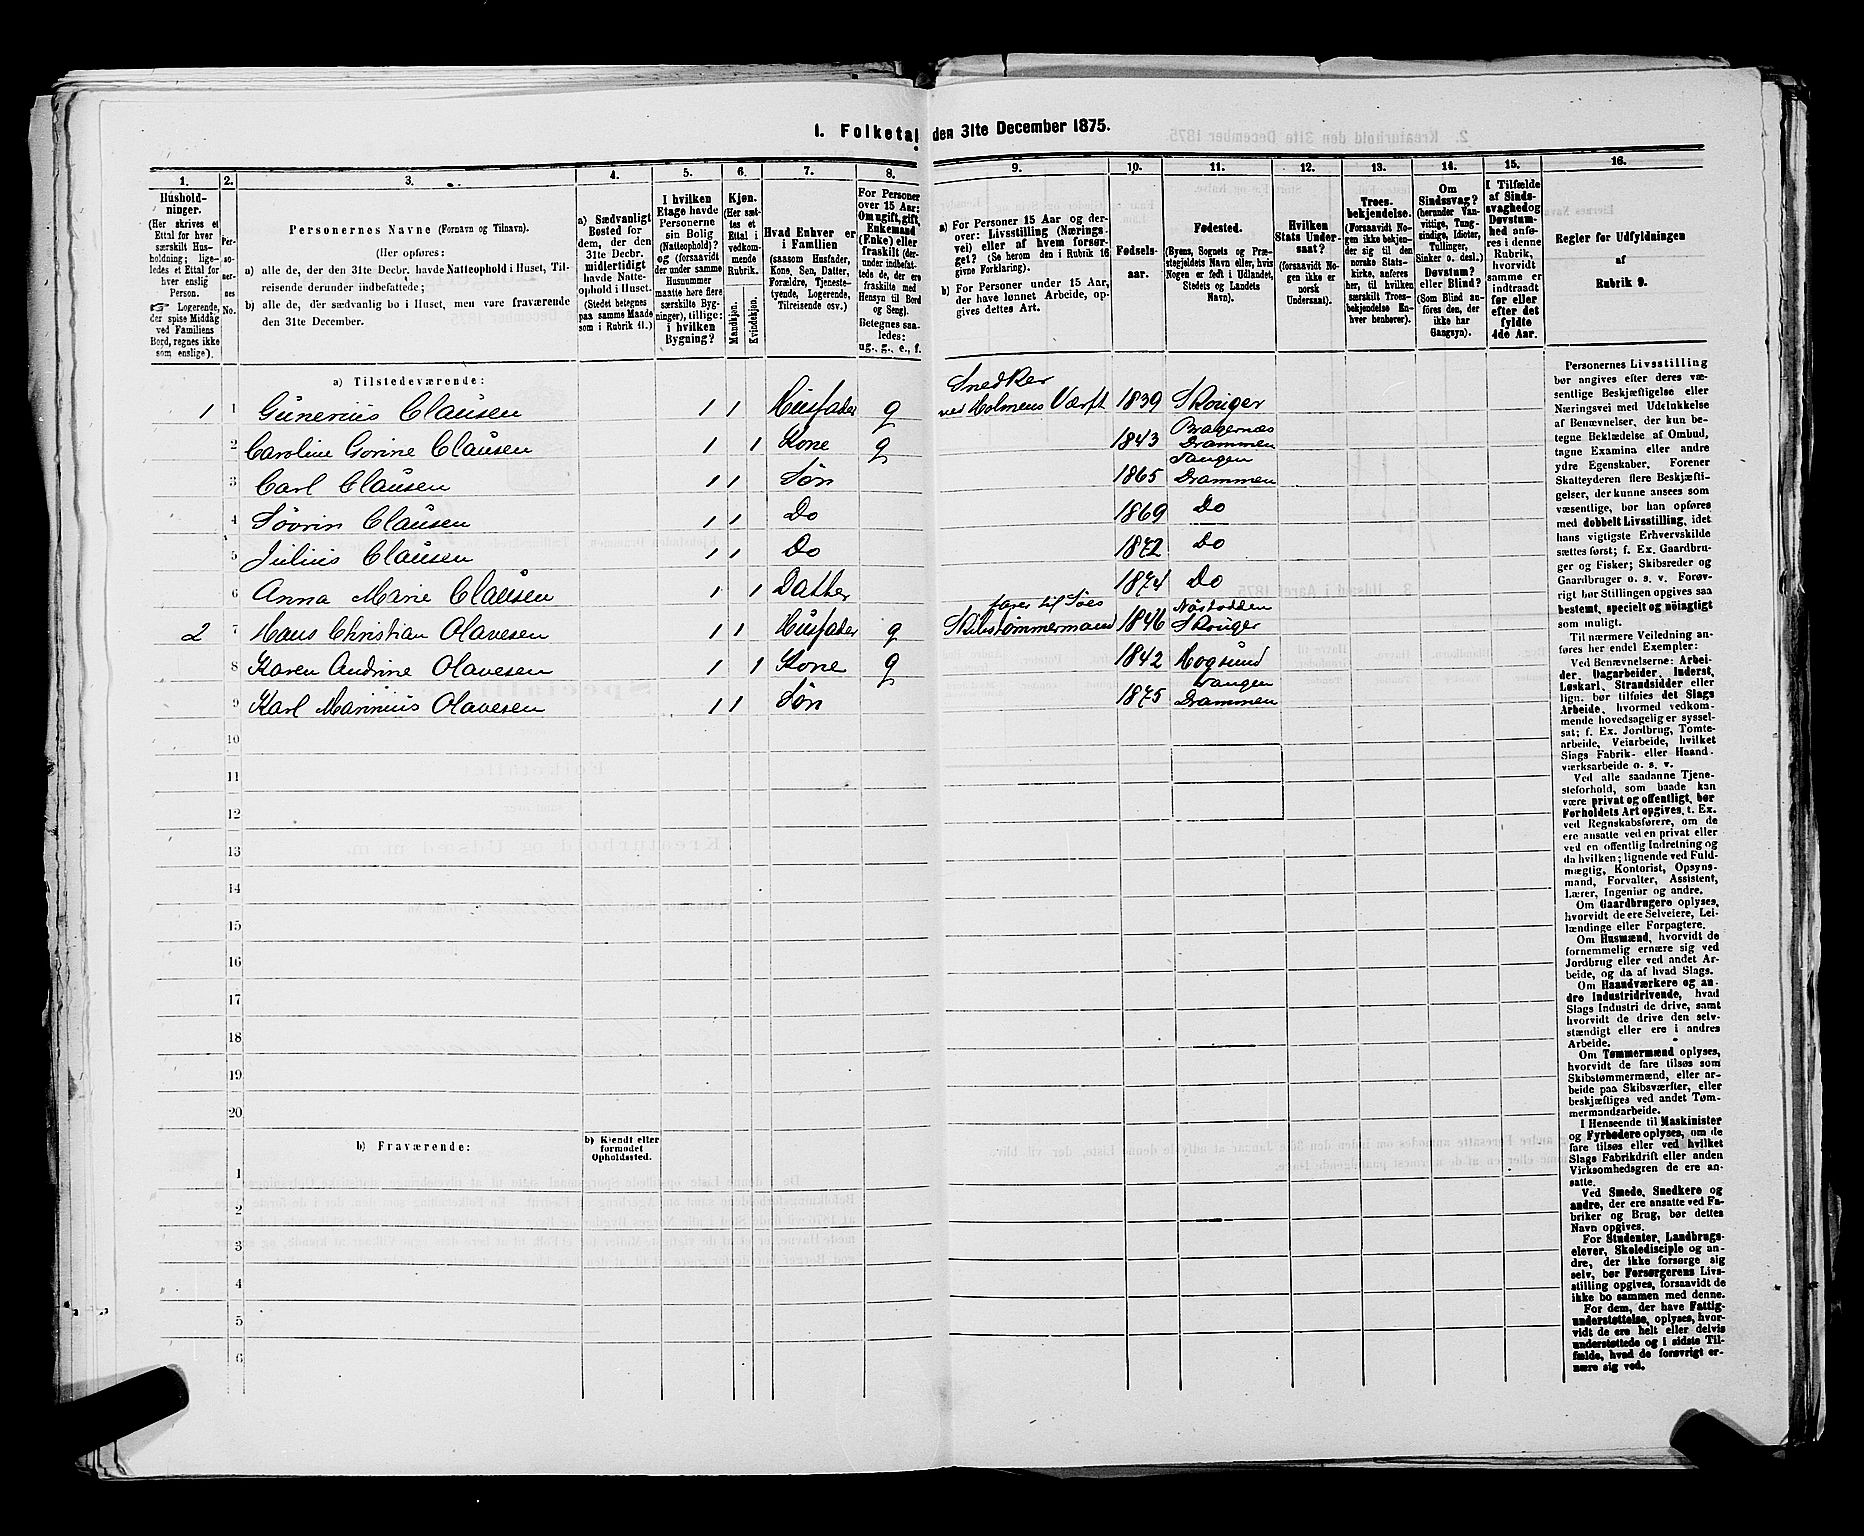 1. Folketal den 31te December 1875.
1. 2. 3. 4. 5. 6. 7. 8. 9. 10. 11. 12. 13. 14. 15. 16.
Husholdninger.
(Her skrives et
Ettal for hver
særskilt Hus-
holdning; lige-
ledes et Ettal for
hver enslig
Person.
☞ Logerende,
der spise Middag
ved Familiens
Bord, regnes ikke
som enslige).
Per-
so-
ner-
nes
No.
Personernes Navne (Fornavn og Tilnavn).
(Her opføres:
a) alle de, der den 31te Decbr. havde Natteophold i Huset, Til-
reisende derunder indbefattede;
b) alle de, der sædvanlig bo i Huset, men vare fraværende
den 31te December.
a) Sædvanligt
Bosted for
dem, der den
31te Decbr.
midlertidigt
havde Natte-
ophold i Huset.
(Stedet betegnes
paa samme Maade
som i Rubrik 11.)
I hvilken
Etage havde
Personerne
sin Bolig
(Natteophold)?
og (forsaavidt
der under samme
Husnummer
maatte høre flere
særskilte Byg-
ninger), tillige:
i hvilken
Bygning?
Kjøn.
(Her sæt-
tes et
Ettal i
vedkom-
mende
Rubrik.
Mandkjøn.
Kvindekjøn.
Hvad Enhver er
i Familien
(saasom Husfader,
Kone, Søn, Datter,
Forældre, Tjeneste-
tyende, Logerende,
Tilreisende osv.)
For Personer
over 15 Aar:
Om ugift, gift,
Enkemand
(Enke) eller
fraskilt (der-
under indbefat-
tede de, der ere
fraskilte med
Hensyn til Bord
og Seng).
Betegnes saa-
ledes:
ug., g., e., f.
a) For Personer 15 Aar og der-
over: Livsstilling (Nærings-
vei) eller af hvem forsør-
get? (Se herom den i Rubrik 16
givne Forklaring).
b) For Personer under 15 Aar,
der have lønnet Arbeide, op-
gives dettes Art.
Fødsels-
aar.
Fødested.
(Byens, Sognets og Præ-
stegjeldets Navn eller, hvis
Nogen er født i Udlandet,
Stedets og Landets
Navn).
Hvilken
Stats Under-
saat?
(forsaavidt No-
gen ikke er
norsk
Undersaat).
Troes-
bekjendelse.
(Forsaavidt No-
gen ikke bekjen-
der sig til den
norske Stats-
kirke, anføres
her, til hvilken
særskilt Troes-
bekjendelse En-
hver henhører).
Om
Sindssvag?
(herunder Van-
vittige, Tung-
sindige, Idioter,
Tullinger,
Sinker o. desl.)
Døvstum?
eller Blind?
(Som Blind an-
føres den, der
ikke har
Gangsyn).
I Tilfælde
af Sinds-
svaghed og
Døvstum-
hed anfø-
res i denne
Rubrik,
hvorvidt
samme er
indtraadt
før eller
efter det
fyldte
4de Aar.
Regler for Udfyldningen
af
Rubrik 9.
a) Tilstedeværende:
1 1 Gunerius Clausen 1 1 Husfader g Snedker ved Holmens Værft 1839 Skouger
2 Caroline Gorine Clausen 1 1 Kone g 1843 Bragernæs Drammen
3 Carl Clausen 1 1 Søn 1865 Tangen Drammen
4 Søvrin Clausen 1 1 Do 1869 Do
5 Julius Clausen 1 1 Do 1872 Do
6 Anna Marie Clausen 1 1 Datter 1874 Do
2 7 Hans Christian Olavesen 1 1 Husfader g farer til Søes Skibstømmermand 1846 Nøstodden Skouger
8 Karen Andrine Olavesen 1 1 Kone g 1842 Hogsund
9 Karl Marinius Olavesen 1 1 Søn 1875 Tangen Drammen
10
11
12
13
14
15
16
17
18
19
20
b) Fraværende:
b) Kjendt eller
formodet
Opholdssted.
1
2
3
4
5
6
Personernes Livsstilling
bør angives efter deres væ-
sentlige Beskjæftigelse eller
Næringsvei med Udelukkelse
af Benævnelser, der kun be-
tegne Beklædelse af Ombud,
tagne Examina eller andre
ydre Egenskaber. Forener
Skatteyderen flere Beskjæfti-
gelser, der kunne ansees som
væsentlige, bør han opføres
med dobbelt Livsstilling, idet
hans vigtigste Erhvervskilde
sættes først; f. Ex. Gaardbru-
ger og Fisker; Skibsreder og
Gaardbruger o. s. v. Forøv-
rigt bør Stillingen opgives saa
bestemt, specielt og nøiagtigt
som muligt.
Til nærmere Veiledning an-
føres her endel Exempler:
Ved Benævnelserne: Arbei-
der, Dagarbeider, Inderst,
Løskarl, Strandsidder eller
lign. bør tilføies det Slags
Arbeide, hvormed vedkom-
mende hovedsagelig er syssel-
sat; f. Ex. Jordbrug, Tomte-
arbeide, Veiarbeide, hvilket
Slags Fabrik- eller Haand-
værksarbeide o. s. v.
Ved alle saadanne Tjene-
steforhold, som baade kan
være privat og offentligt, bør
Forholdets Art opgives, t. Ex.
ved Regnskabsførere, om de
ere ansatte ved en privat eller
ved en offentlig Indretning og
da hvilken; lignende ved Fuld-
mægtig, Kontorist, Opsyns-
mand, Forvalter, Assistent,
Lærer, Ingeniør og andre.
Om Gaardbrugere oplyses,
hvorvidt de ere Selveiere, Lei-
lændinge eller Forpagtere.
Om Husmænd, hvorvidt de
fornemmelig ernære sig ved
Jordbrug eller ved andet Ar-
beide, og da af hvad Slags.
Om Haandværkere og an-
dre Industridrivende, hvad
Slags Industri de drive, samt
hvorvidt de drive den selv-
stændigt eller ere i andres
Arbeide.
Om Tømmermænd oplyses,
hvorvidt de fare tilsøs som
Skibstømmermænd, eller ar-
beide paa Skibsværfter, eller
beskjæftiges ved andet Tøm-
mermandsarbeide.
I Henseende til Maskinister
og Fyrbødere oplyses, om de
fare tilsøs eller ved hvilket
Slags Fabrikdrift eller anden
Virksomhedsgren de ere an-
satte.
Ved Smede, Snedkere og
andre, der ere ansatte ved Fa-
briker og Brug, bør dettes
Navn opgives.
For Studenter, Landbrugs-
elever, Skoledisciple og an-
dre, der ikke forsørge sig
selv, bør Forsørgerens Livs-
stilling opgives, forsaavidt de
ikke bo sammen med denne.
For dem, der have Fattig-
understøttelse, oplyses, hvor-
vidt de ere helt eller delvis
understøttede og i sidste Til-
fælde, hvad de forøvrigt er-
nære sig ved.